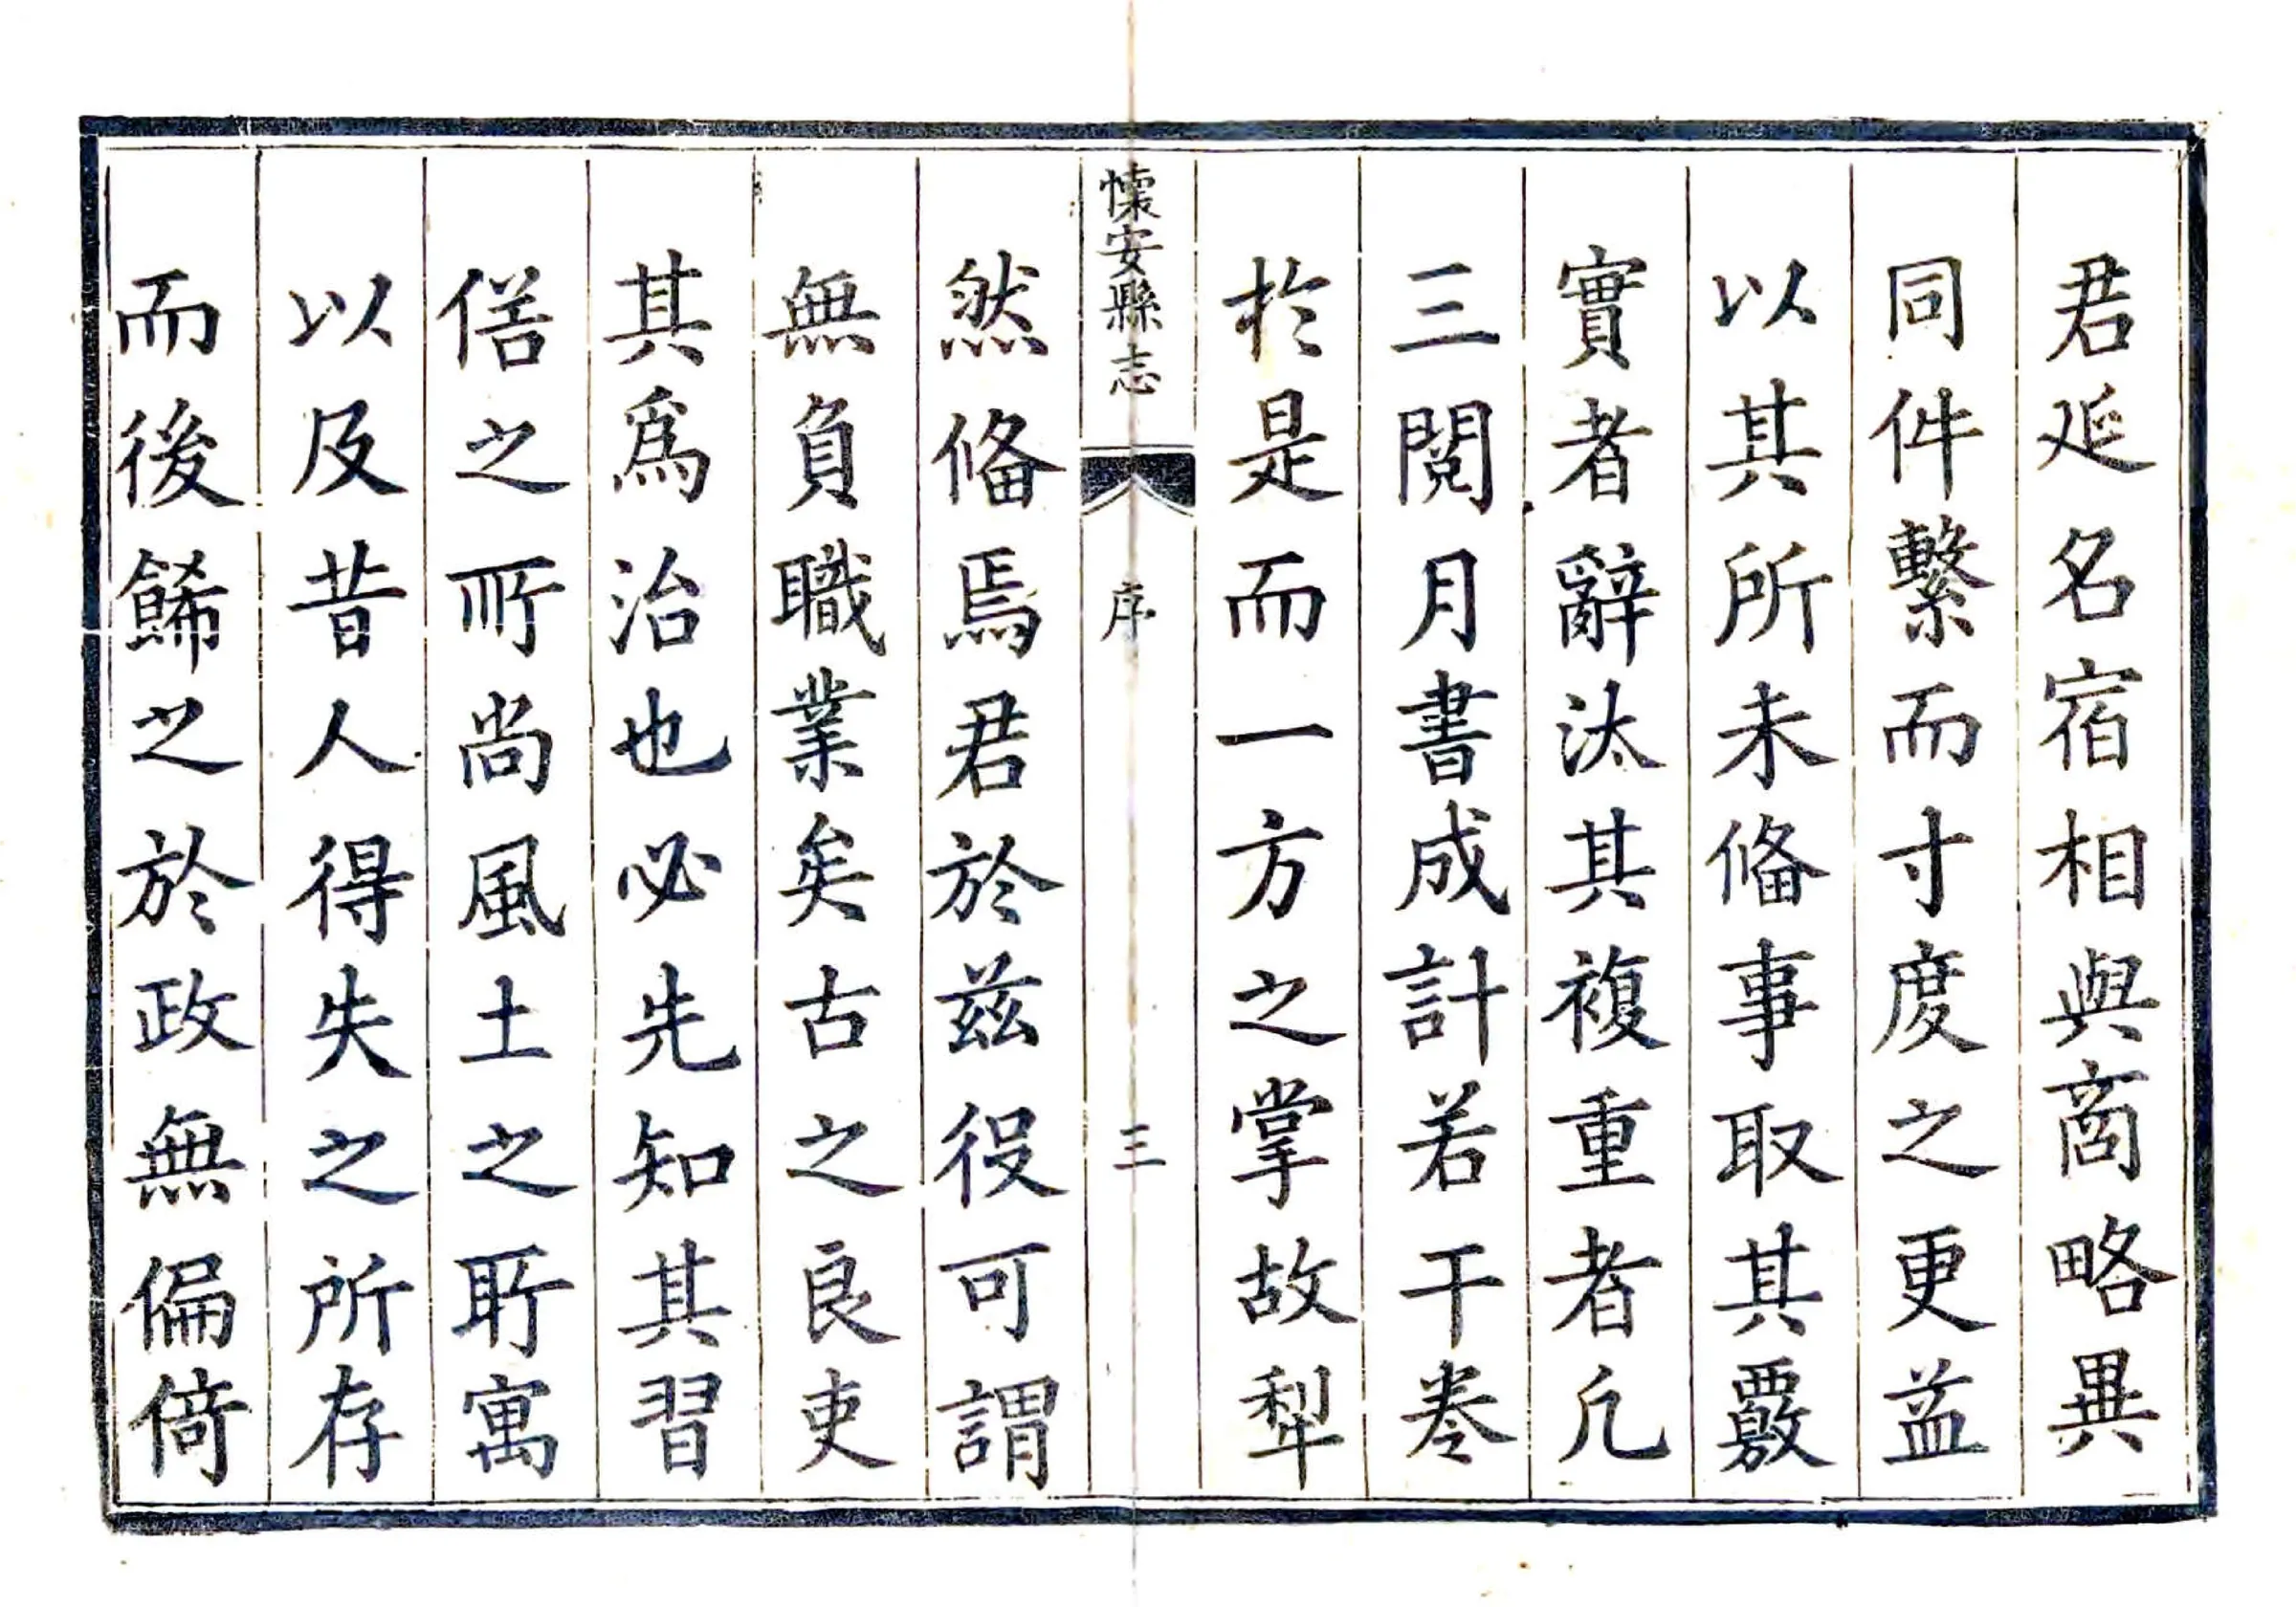 君延名宿相與商略異
同件繫而寸度之更益
以其所未備事取其覈
實者辭汰其複重者凡
三閱月書成計若干卷
於是而一方之掌故犁
懷安縣志
序
三
然備焉君於茲役可謂
無負職業矣古之良吏
其爲治也必先知其習
俗之所尚風土之所寓
以及昔人得失之所存
而後餙之於政無偏倚